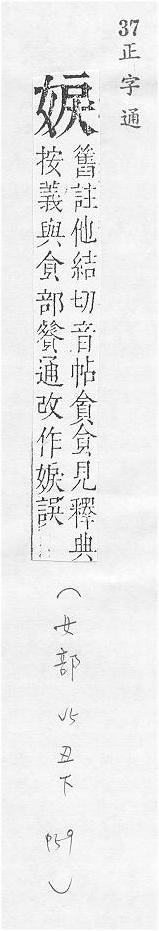 37 正字通
舊註他結切音帖貪食見釋典
按義與食部餮通改作誤
(女部 丑下 P59)